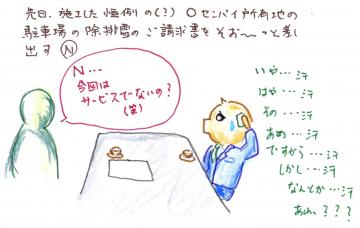 先日、施工した恒例の(?) 〇センパイ戸所有地の
駐車場の除排雪のご請求書をそお〜っと差し
出す Ⓝ
N…
今回は
サービスでないの?
(笑)
いや…汗
はや…汗
その…汗
あの…汗
ですから…汗
しかし…汗
なんとか…汗
あれっ???